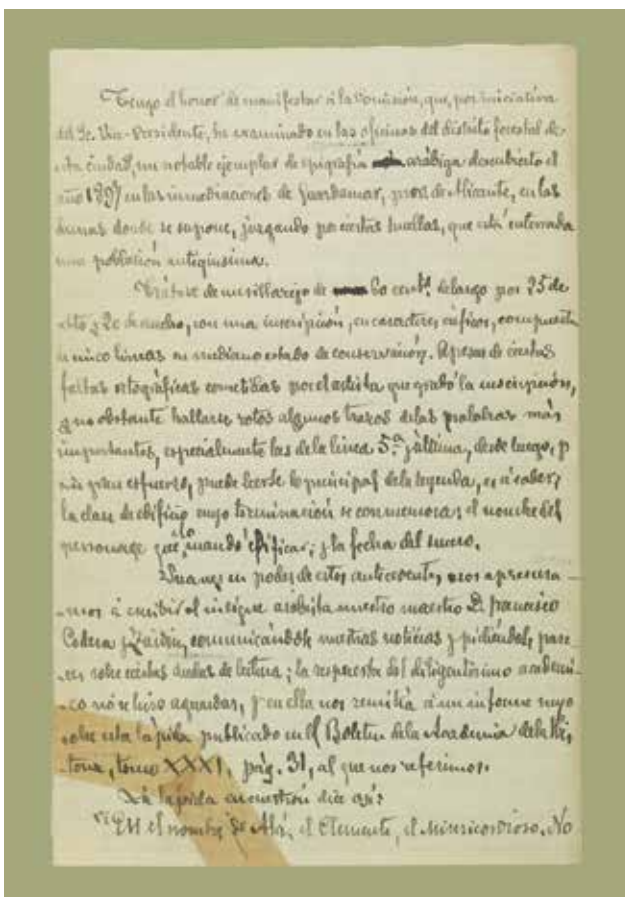 Tengo el honor de manifestar á la Comisión, que, por iniciativa
del Sr. Vice-Presidente, he examinado en las oficinas del distrito forestal de
esta ciudad, un notable ejemplar de epigrafía arábiga descubierto el
año 1897 en las inmediaciones de Guardamar, prov. de Alicante, en las
dunas donde se supone, juzgando por ciertas huellas, que está enterrada
una población antiquísima.
Trátase de un sillarejo de 60 centº. de largo por 25 de
alto y 20 de ancho, con una inscripción, en caracteres cúficos, compuesta
de cinco líneas en mediano estado de conservación. Apesar de ciertas
faltas ortográficas cometidas por el artista que grabó la inscripción,
y no obstante hallarse rotos algunos trazos de las palabras más
importantes, especialmente las de la línea 5.ª y última, desde luego, y
sin gran esfuerzo, puede leerse lo principal de la leyenda, es á saber;
la clase de edificio cuya terminación se conmemora; el nombre del
personage que lo mandó edificar; y la fecha del suceso.
en poder de estos antecedentes, nos apresura-
-mos á escribir al insigne arabista nuestro maestro D. Francisco
Codera y Zaidín, comunicándole nuestras noticias y pidiéndole pare-
-cer sobre ciertas dudas de lectura; la respuesta del diligentísimo académi-
-co nó se hizo aguardar, y en ella nos remitía á un informe suyo
sobre esta lápida publicado en el Boletín de la Academia de la His-
-toria, tomo XXXI, pág. 31, al que nos referimos.
La lápida en cuestión dice así:
"En el nombre de Alá, el Clemente, el Misericordioso. No